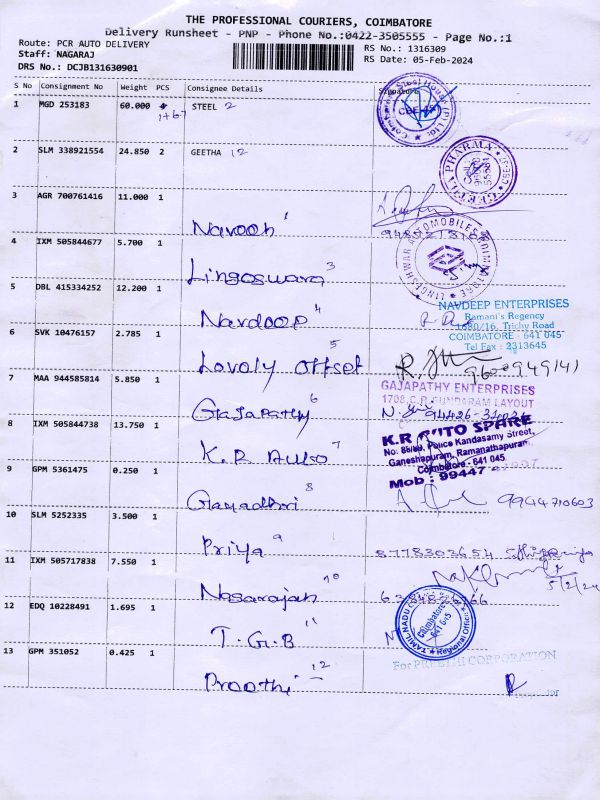 THE PROFESSIONAL COURIERS, COIMBATORE
Delivery Runsheet - PNP - Phone No.:0422-3505555 - Page No.:1
Route: PCR AUTO DELIVERY
Staff: NAGARAJ
DRS No.: DCJB131630901
RS No.: 1316309
RS Date: 05-Feb-2024
S No Consignment No Weight PCS Consignee Details Signature
1 MGD 253183 60.000 STEEL 2
1+67
2 SLM 338921554 24.850 2 GEETHA 12
GEETHA PHARMA
3 AGR 700761416 11.000 1
Navooh 1
4 IXM 505844677 5.700 1
Lingoswara 3
LINGESHWAR AUTOMOBILES
5 DBL 415334252 12.200 1
Navdoop 4
NAVDEEP ENTERPRISES
Ramani's Regency
1680/16, Trichy Road
COIMBATORE - 641 045
Tel Fax : 2313645
6 SVK 10476157 2.785 1
Lovely offset 5
9600949141
7 MAA 944585814 5.850 1
Gajapathy 6
GAJAPATHY ENTERPRISES
1708, C.R. SUNDARAM LAYOUT
8 IXM 505844738 13.750 1
K.R Auto 7
K.R AUTO SPARE
Police Kandasamy Street,
Ganeshapuram, Ramanathapuram
Coimbatore - 641 045
Mob : 99447
9 GPM 5361475 0.250 1
Gayadhri 8
9944710603
10 SLM 5252335 3.500 1
Priya 9
8778303654
11 IXM 505717838 7.550 1
Nasarajah 10
5/2/24
12 EDQ 10228491 1.695 1
T.G.B 11
TAMILNADU
Coimbatore
641 045
Regional Office
13 GPM 351052 0.425 1
Proothi 12
For PREETHI CORPORATION